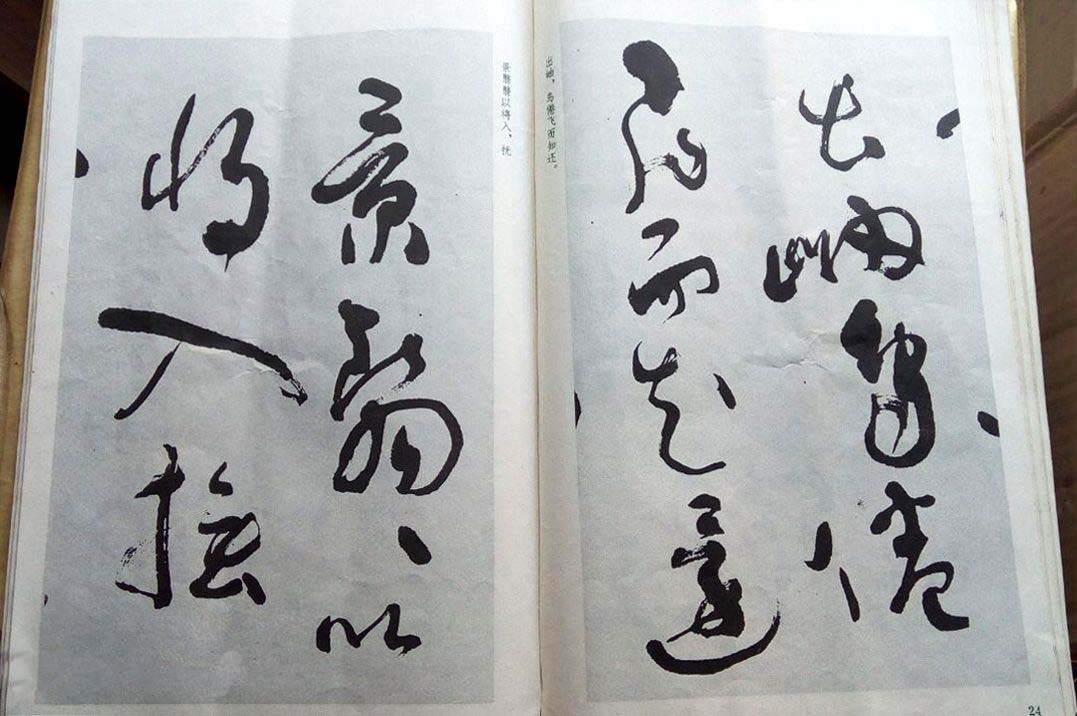 出岫鳥倦
飛而知還
出岫，鸟倦飞而知还。
24
景翳翳以将入，抚
景翳〻以
將入撫